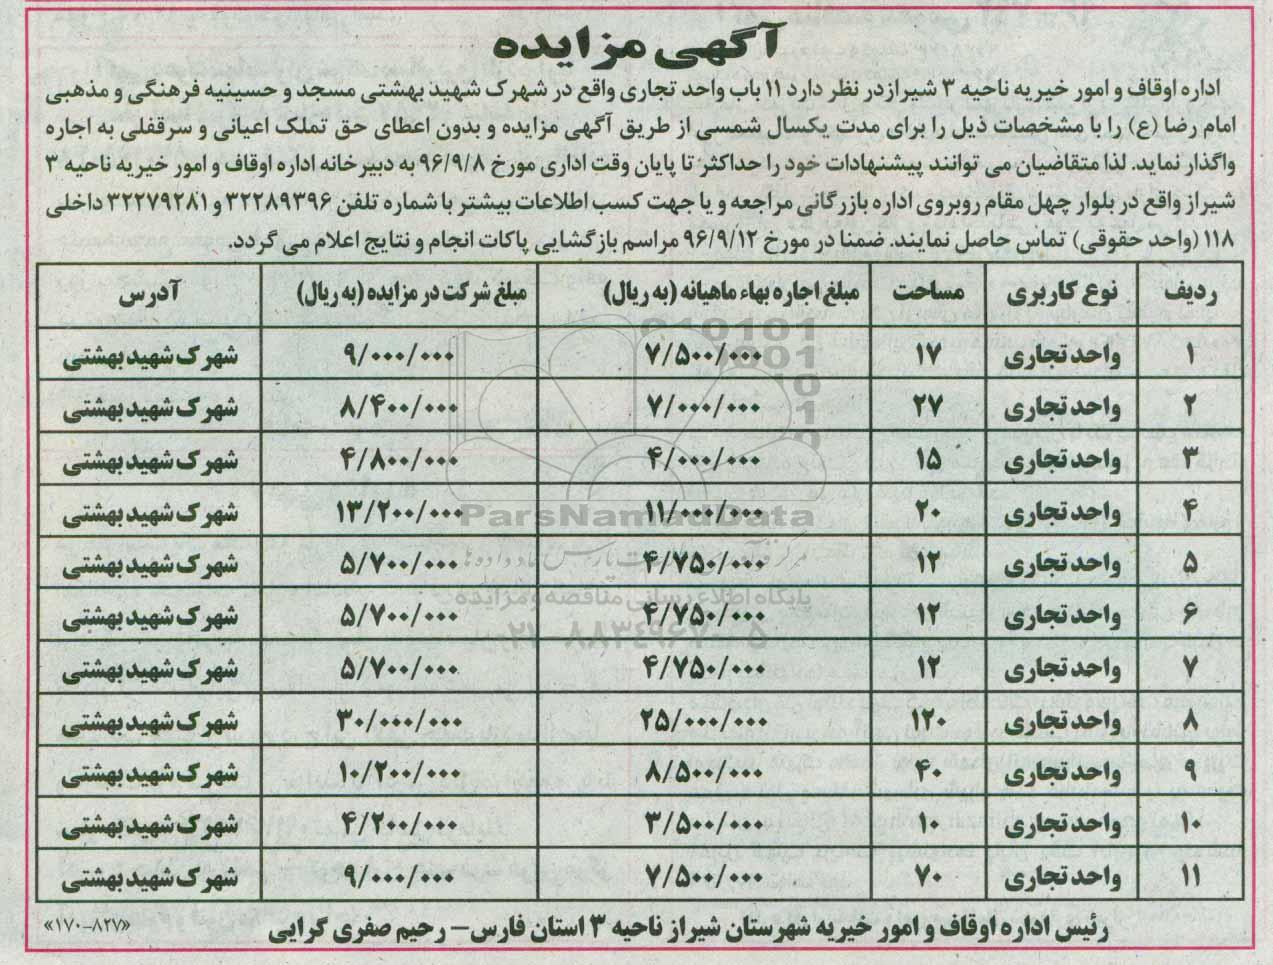 آگهی مزایده
اداره اوقاف و امور خیریه ناحیه ۳ شیراز در نظر دارد ۱۱ باب واحد تجاری واقع در شهرک شهید بهشتی مسجد و حسینیه فرهنگی و مذهبی
امام رضا (ع) را با مشخصات ذیل را برای مدت یکسال شمسی از طریق آگهی مزایده و بدون اعطای حق تملک اعیانی و سرقفلی به اجاره
واگذار نماید. لذا متقاضیان می توانند پیشنهادات خود را حداکثر تا پایان وقت اداری مورخ ۹۶/۹/۸ به دبیرخانه اداره اوقاف و امور خیریه ناحیه ۳
شیراز واقع در بلوار چهل مقام روبروی اداره بازرگانی مراجعه و یا جهت کسب اطلاعات بیشتر با شماره تلفن ۳۲۲۸۹۳۹۶ و ۳۲۲۷۹۲۸۱ داخلی
۱۱۸ (واحد حقوقی) تماس حاصل نمایند. ضمنا در مورخ ۹۶/۹/۱۲ مراسم بازگشایی پاکات انجام و نتایج اعلام می گردد.
ردیف نوع کاربری مساحت مبلغ اجاره بهاء ماهیانه (به ریال) مبلغ شرکت در مزایده (به ریال) آدرس
۱ واحد تجاری ۱۷ ۷/۵۰۰/۰۰۰ ۹/۰۰۰/۰۰۰ شهرک شهید بهشتی
۲ واحد تجاری ۲۷ ۷/۰۰۰/۰۰۰ ۸/۴۰۰/۰۰۰ شهرک شهید بهشتی
۳ واحد تجاری ۱۵ ۴/۰۰۰/۰۰۰ ۴/۸۰۰/۰۰۰ شهرک شهید بهشتی
۴ واحد تجاری ۲۰ ۱۱/۰۰۰/۰۰۰ ۱۳/۲۰۰/۰۰۰ شهرک شهید بهشتی
۵ واحد تجاری ۱۲ ۴/۷۵۰/۰۰۰ ۵/۷۰۰/۰۰۰ شهرک شهید بهشتی
۶ واحد تجاری ۱۲ ۴/۷۵۰/۰۰۰ ۵/۷۰۰/۰۰۰ شهرک شهید بهشتی
۷ واحد تجاری ۱۲ ۴/۷۵۰/۰۰۰ ۵/۷۰۰/۰۰۰ شهرک شهید بهشتی
۸ واحد تجاری ۱۲۰ ۲۵/۰۰۰/۰۰۰ ۳۰/۰۰۰/۰۰۰ شهرک شهید بهشتی
۹ واحد تجاری ۴۰ ۸/۵۰۰/۰۰۰ ۱۰/۲۰۰/۰۰۰ شهرک شهید بهشتی
۱۰ واحد تجاری ۲۰ ۳/۵۰۰/۰۰۰ ۴/۲۰۰/۰۰۰ شهرک شهید بهشتی
۱۱ واحد تجاری ۷۰ ۷/۵۰۰/۰۰۰ ۹/۰۰۰/۰۰۰ شهرک شهید بهشتی
رئیس اداره اوقاف و امور خیریه شهرستان شیراز ناحیه ۳ استان فارس – رحیم صفری گرایی
«۱۷۰-۸۲۷»
ParsNamadData
پایگاه اطلاع رسانی مناقصه و مزایده